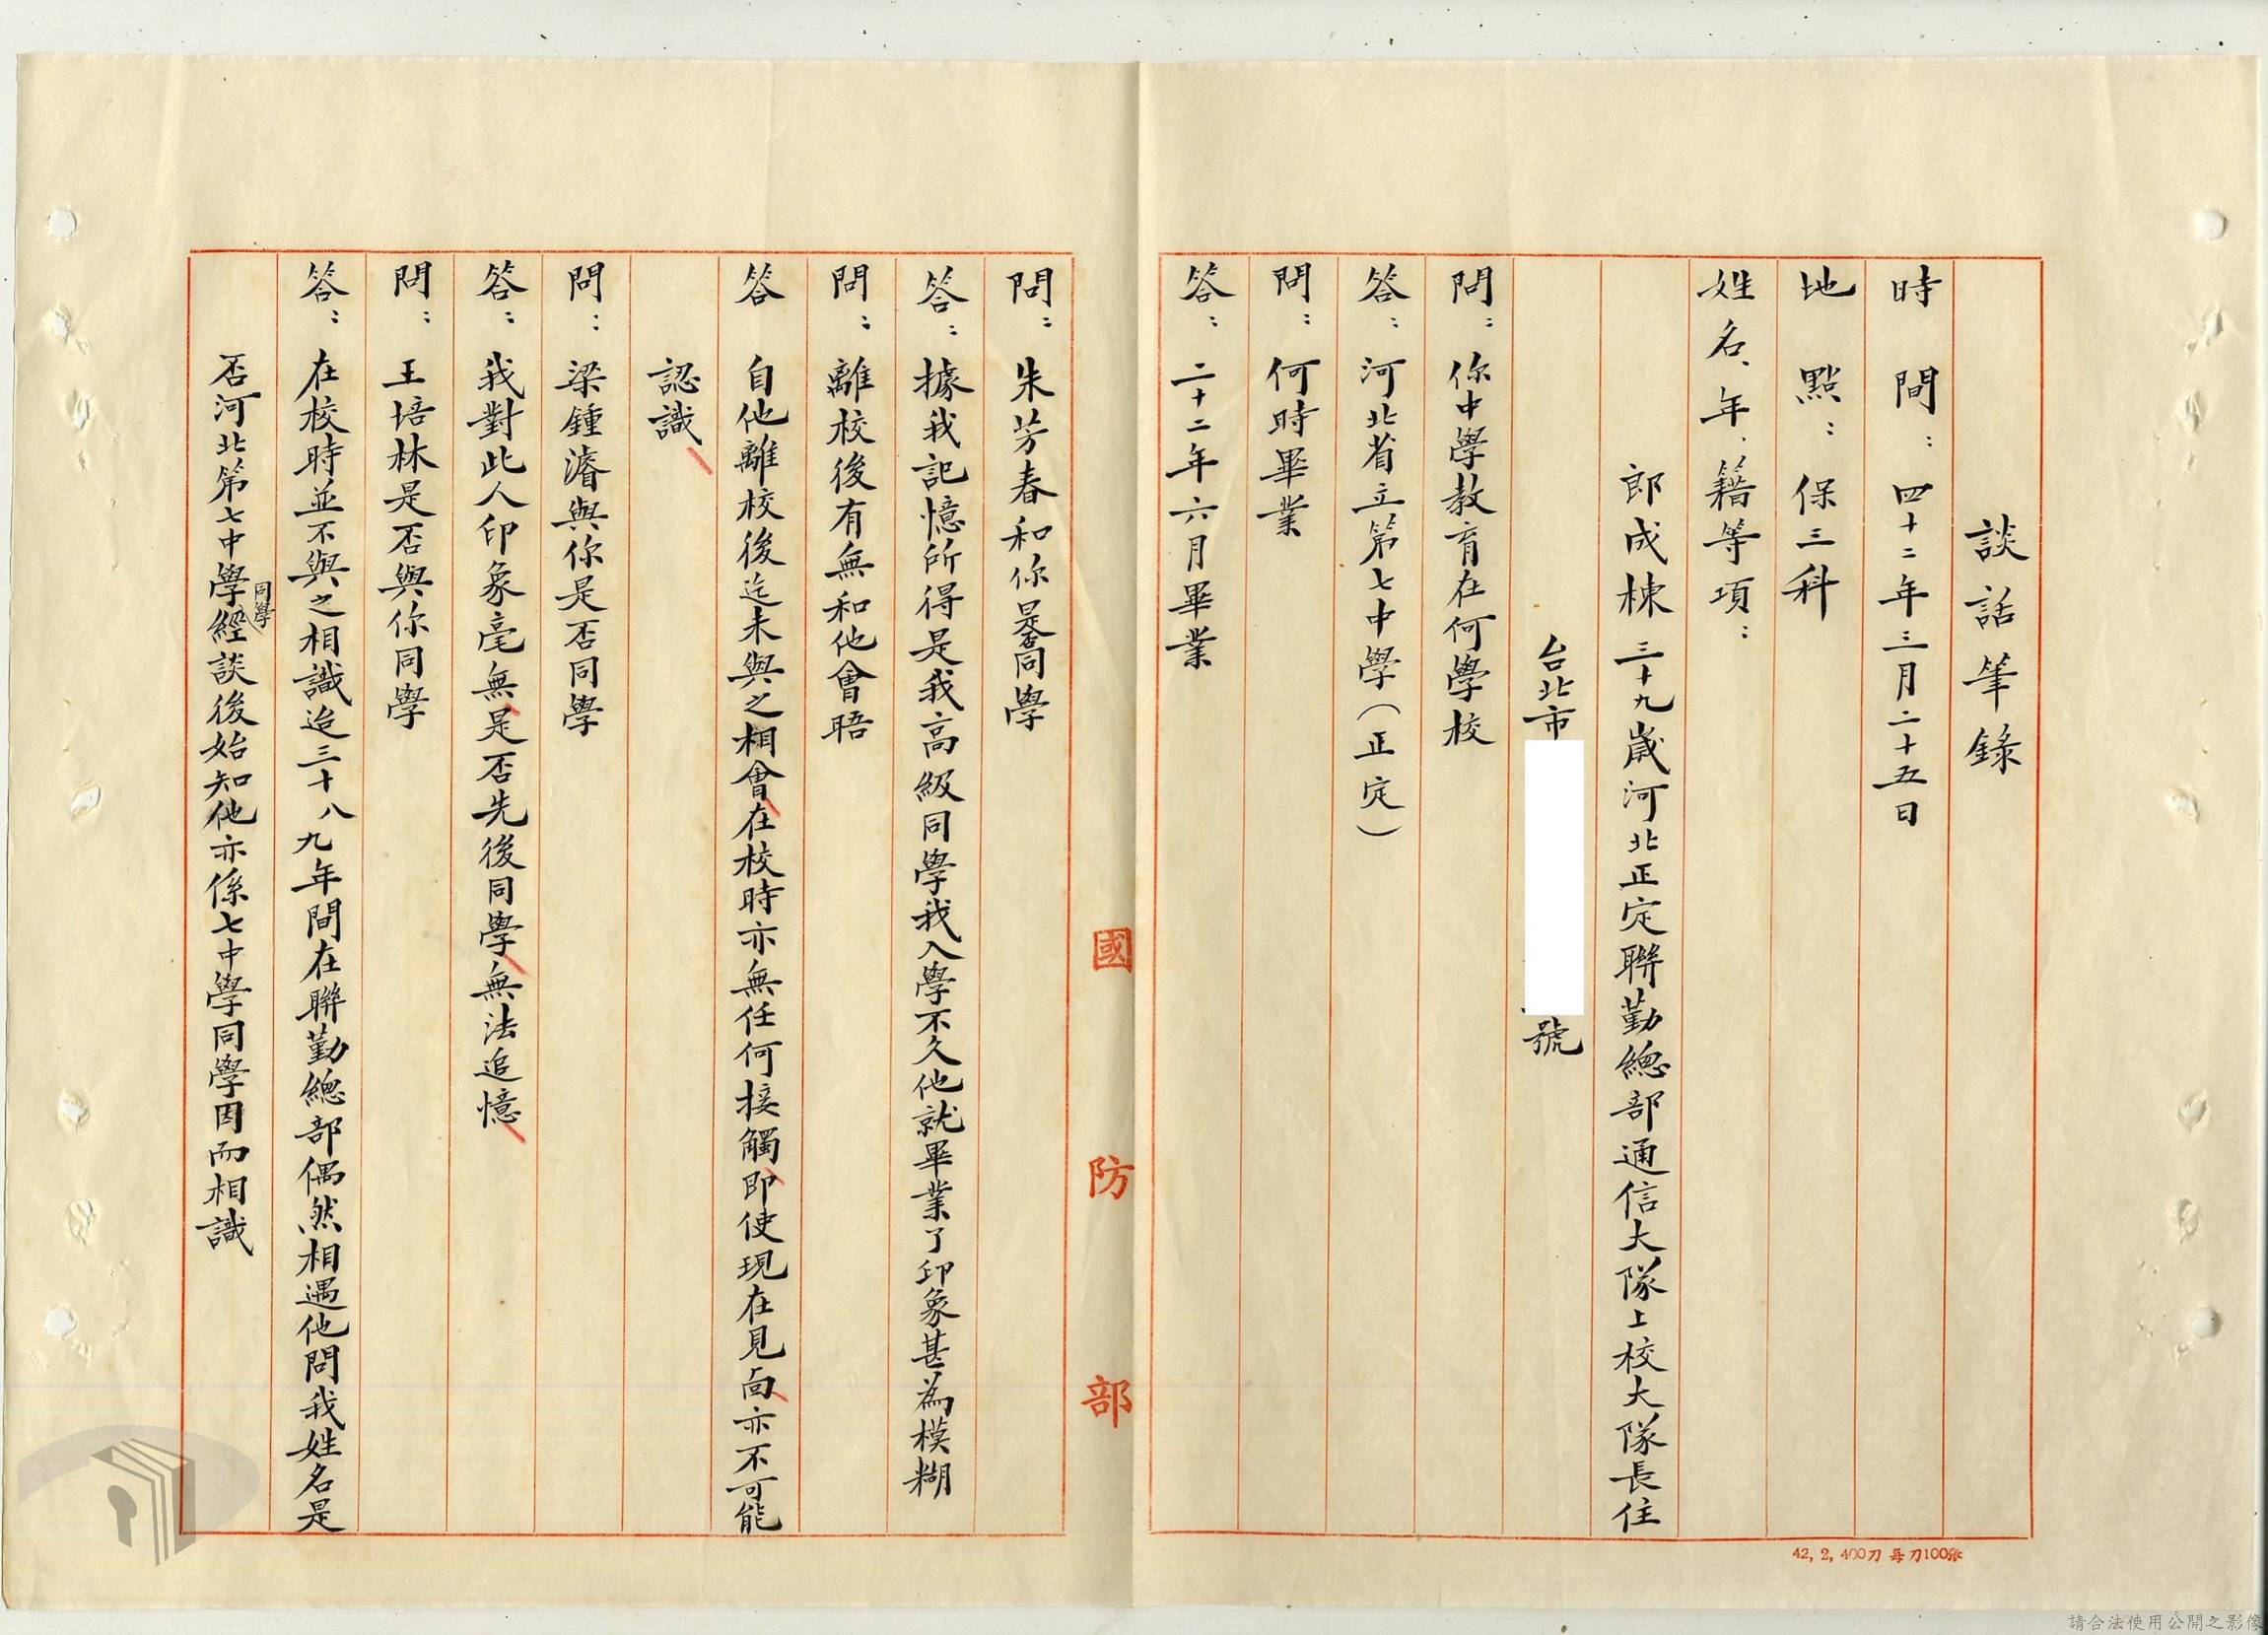 談話筆錄
時間：四十二年三月二十五日
地點：保三科
姓名、年、籍等項：
郎成棟 三十九歲河北正定聯勤總部通信大隊上校大隊長住
台北市
號
問：你中學教育在何學校
答：河北省立第七中學（正定）
問：何時畢業
答：二十二年六月畢業
國防部
問：朱芳春和你是否同學
答：據我記憶所得是我高級同學我入學不久他就畢業了印象甚為模糊
問：離校後有無和他會晤
答 自他離校後迄未與之相會在校時亦無任何接觸即使現在見面亦不可能
認識
問：梁鍾濬與你是否同學
答：我對此人印象毫無是否先後同學無法追憶
問：王培林是否與你同學
答：在校時並不與之相識迨三十八九年間在聯勤總部偶然相遇他問我姓名是
否河北第七中學同學經談後始知他亦係七中學同學因而相識
42, 2, 400刀 每刀100張
請合法使用公開之影像